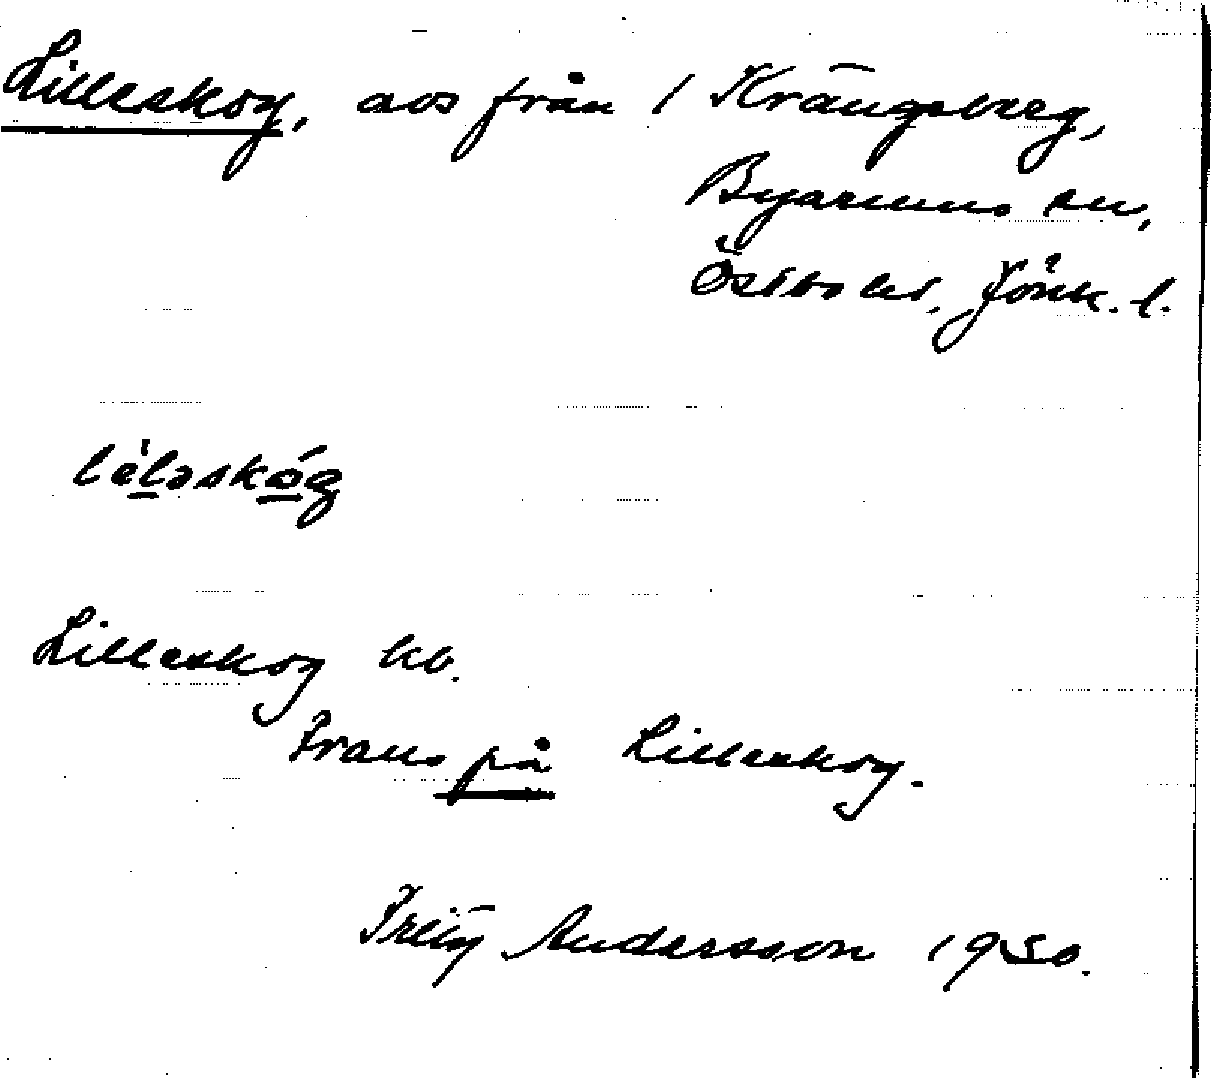 Lilleskog, avs från 1 Krängsberg,
Byarums sn,
Östbo hd, Jönk. l.
lèləskóg
Lilleskog kb.
Frans på Lilleskog.
Andersson 1950.